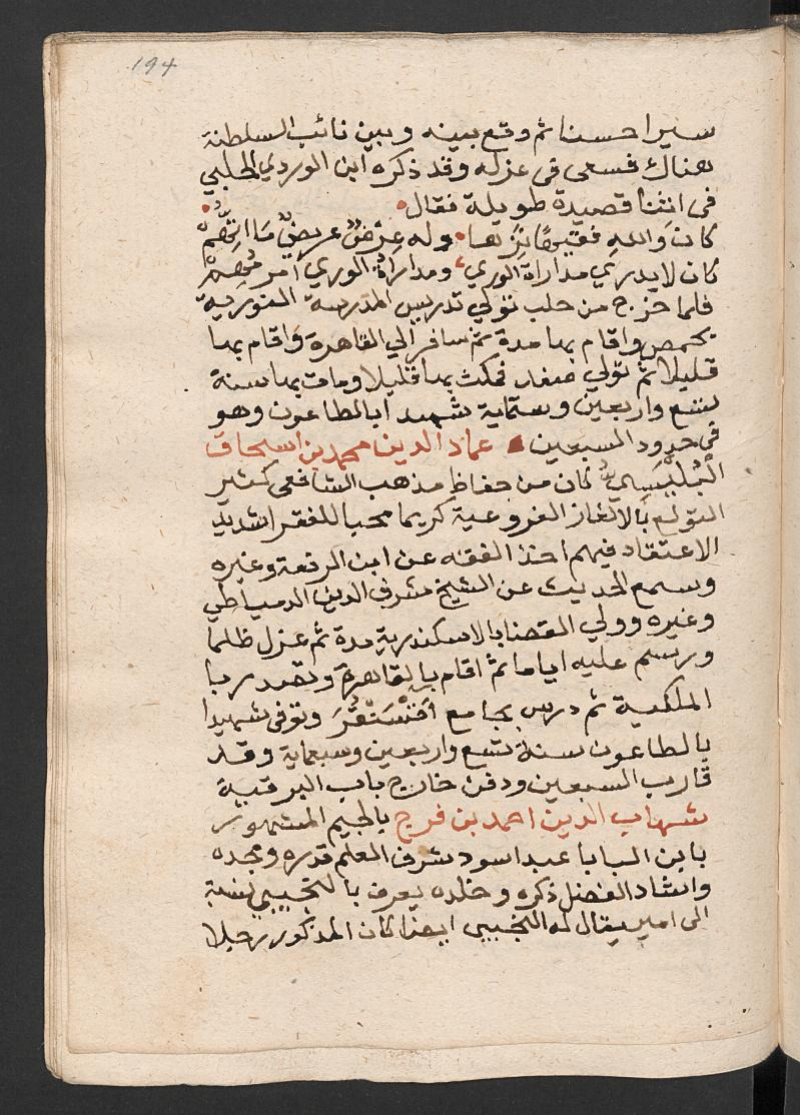 194
سيرا حسنا ثم وقع بينه وبين نائب السلطنة
هناك فسعى فى عزله وقد ذكره ابن الوردي الحلبي
فى اثنا قصيدة طويلة فقال
كان والله فقيها نزها وله عرض عريض ما اتهم
كان لا يدري مداراة الوري ومداراة الوري امر مهم
فلما خرج من حلب تولي تدريس المدرسة النورية
بحمص واقام بها مدة ثم سافر الي القاهرة واقام بها
قليلا ثم تولي صفد فمكث بها قليلا ومات بها سنة
تسع واربعين وستماية شهيدا بالطاعون وهو
في حدود السبعين عماد الدين محمد بن اسحاق
البلبيسي كان من حفاظ مذهب الشافعى كثير
التولع بالالغاز الفروعية كريما محبا للفقرا شديد
الاعتقاد فيهم اخذ الفقه عن ابن الرفعة وغيره
وسمع الحديث عن الشيخ شرف الدين الدمياطي
وغيره وولي القضا بالاسكندرية مدة ثم عزل ظلما
ورسم عليه اياما ثم اقام بالقاهرة وتصدر با
الملكية ثم درس بجامع اقسنقر وتوفى شهيدا
بالطاعون سنة تسع واربعين وسبعماية وقد
قارب السبعين ودفن خارج باب البرقية
شهاب الدين احمد بن فرج بالجيم المشهور
بابن البابا عبد اسود شرف العلم قدره ومجده
واشاد الفضل ذكره وخلده يعرف بالنجيبي نسبة
الى امير يقال له النجيبى ايضا كان المذكور رجلا